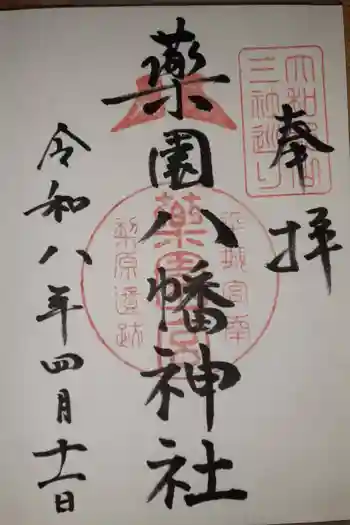 奉拝
大和郡山
三社巡り
藥園八幡神社
平城宮南
藥園
梨原遺跡
令和八年四月十一日